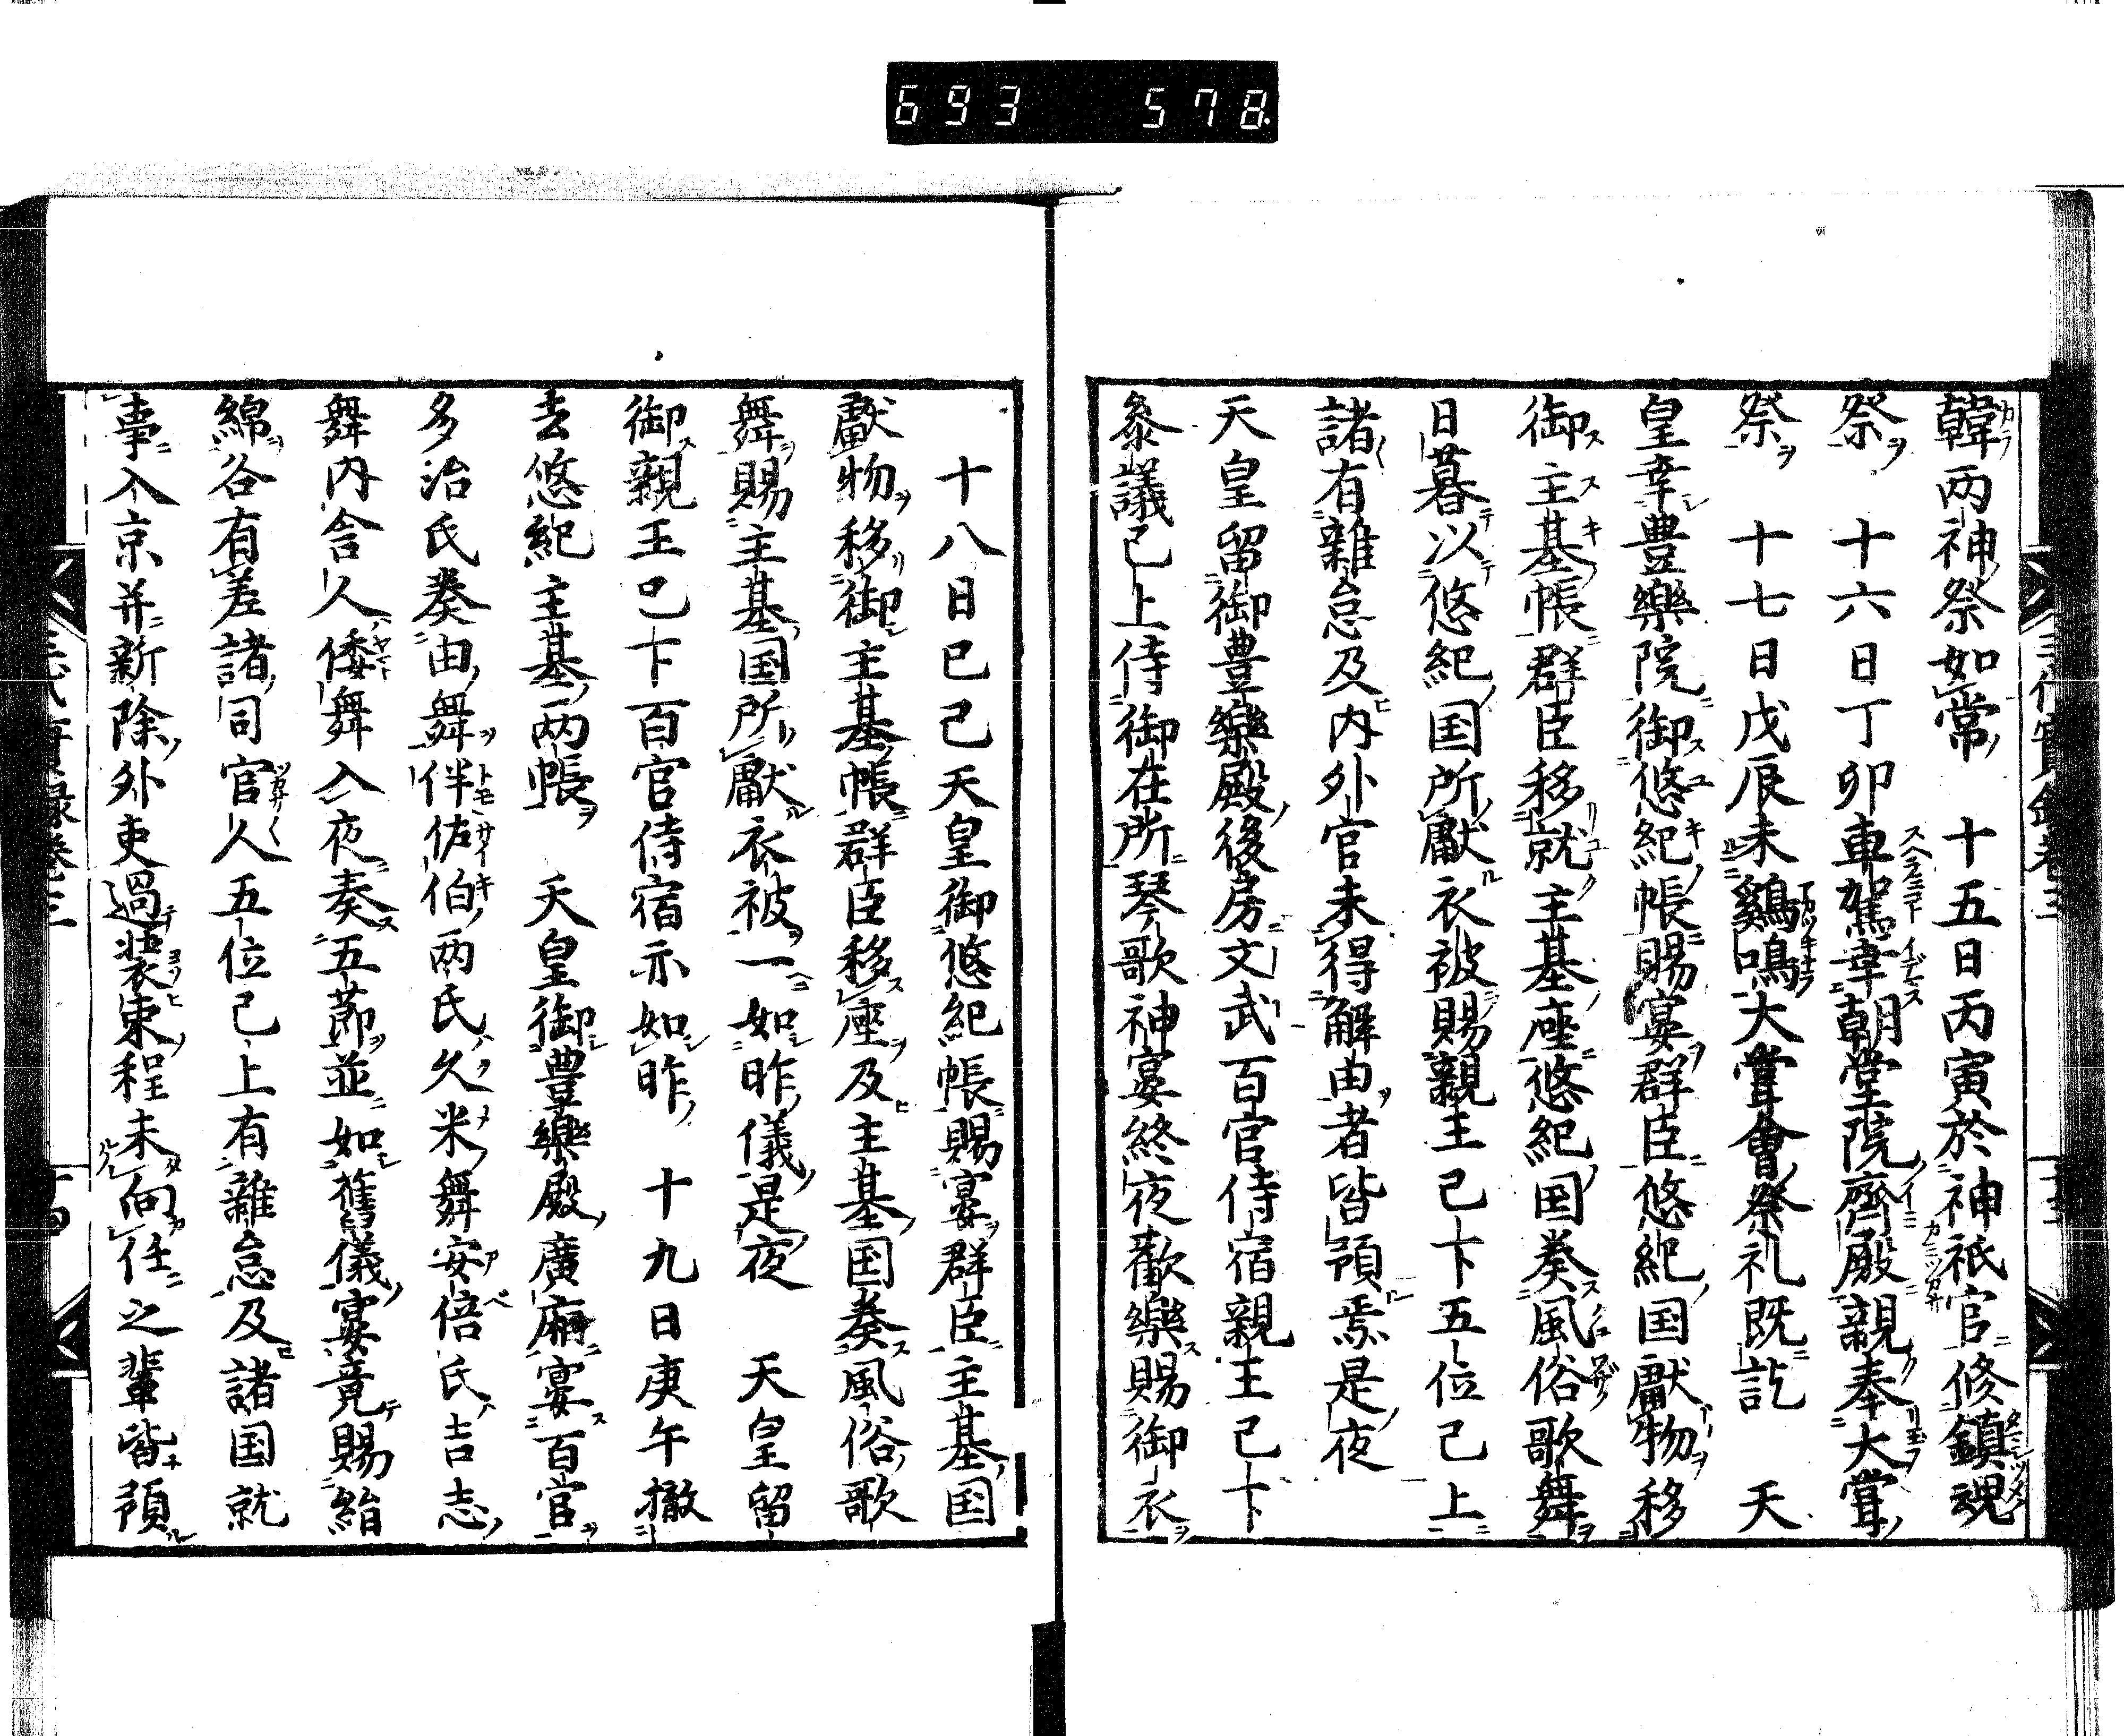 693 578
韓兩神祭如常 十五日丙寅於神祇官修鎮魂
祭 十六日丁卯車駕幸朝堂院齊殿親奉大甞
祭 十七日戊辰未鷄鳴大甞會祭礼既訖 天
皇幸豊樂院御悠紀帳賜宴群臣悠紀国獻物移
御主基帳群臣移就主基座悠紀国奏風俗歌舞
日暮以悠紀国所獻衣被賜親王已下五位已上
諸有雜怠及内外官未得解由者皆預焉是夜
天皇留御豊樂殿後房文武百官侍宿親王已下
叅議已上侍御在所琴歌神宴終夜歡樂賜御衣
十八日已巳天皇御悠紀帳賜宴群臣主基国
獻物移御主基帳群臣移座及主基国奏風俗歌
舞賜主基国所獻衣被一如昨儀是夜 天皇留
御親王已下百官侍宿亦如昨 十九日庚午撤
去悠紀主基兩帳 天皇御豊樂殿廣廂宴百官
多治氏奏田舞伴佐伯兩氏久米舞安倍氏吉志
舞内舎人倭舞入夜奏五節並如舊儀宴竟賜絹
綿各有差諸司官人五位已上有雜怠及諸国就
事入京并新除外吏過装束程未向任之輩皆預